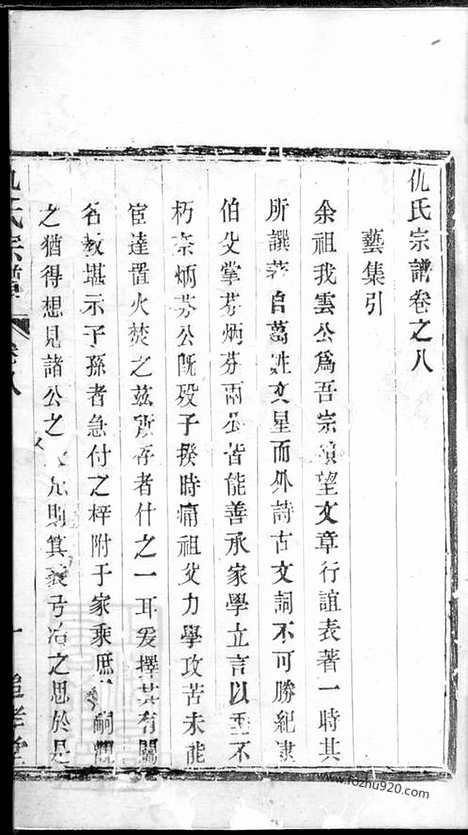 仇氏宗譜卷之八
藝集引
余祖我雲公為吾宗碩望文章行誼表著一時其
所譔著自葛姓文星而外詩古文詞不可勝紀逮
伯父掌芬炳芬兩公皆能善承家學立言以垂不
朽奈炳芬公既歿子揆時痛祖父力學攻苦未能
宦達置火焚之茲所存者什之一耳爰擇其有關
名教堪示子孫者急付之梓附于家乘庶 嗣
之猶得想見諸公之 則箕裘弓冶之思於是
仇氏宗譜
卷八
一
www.fozhu920.com